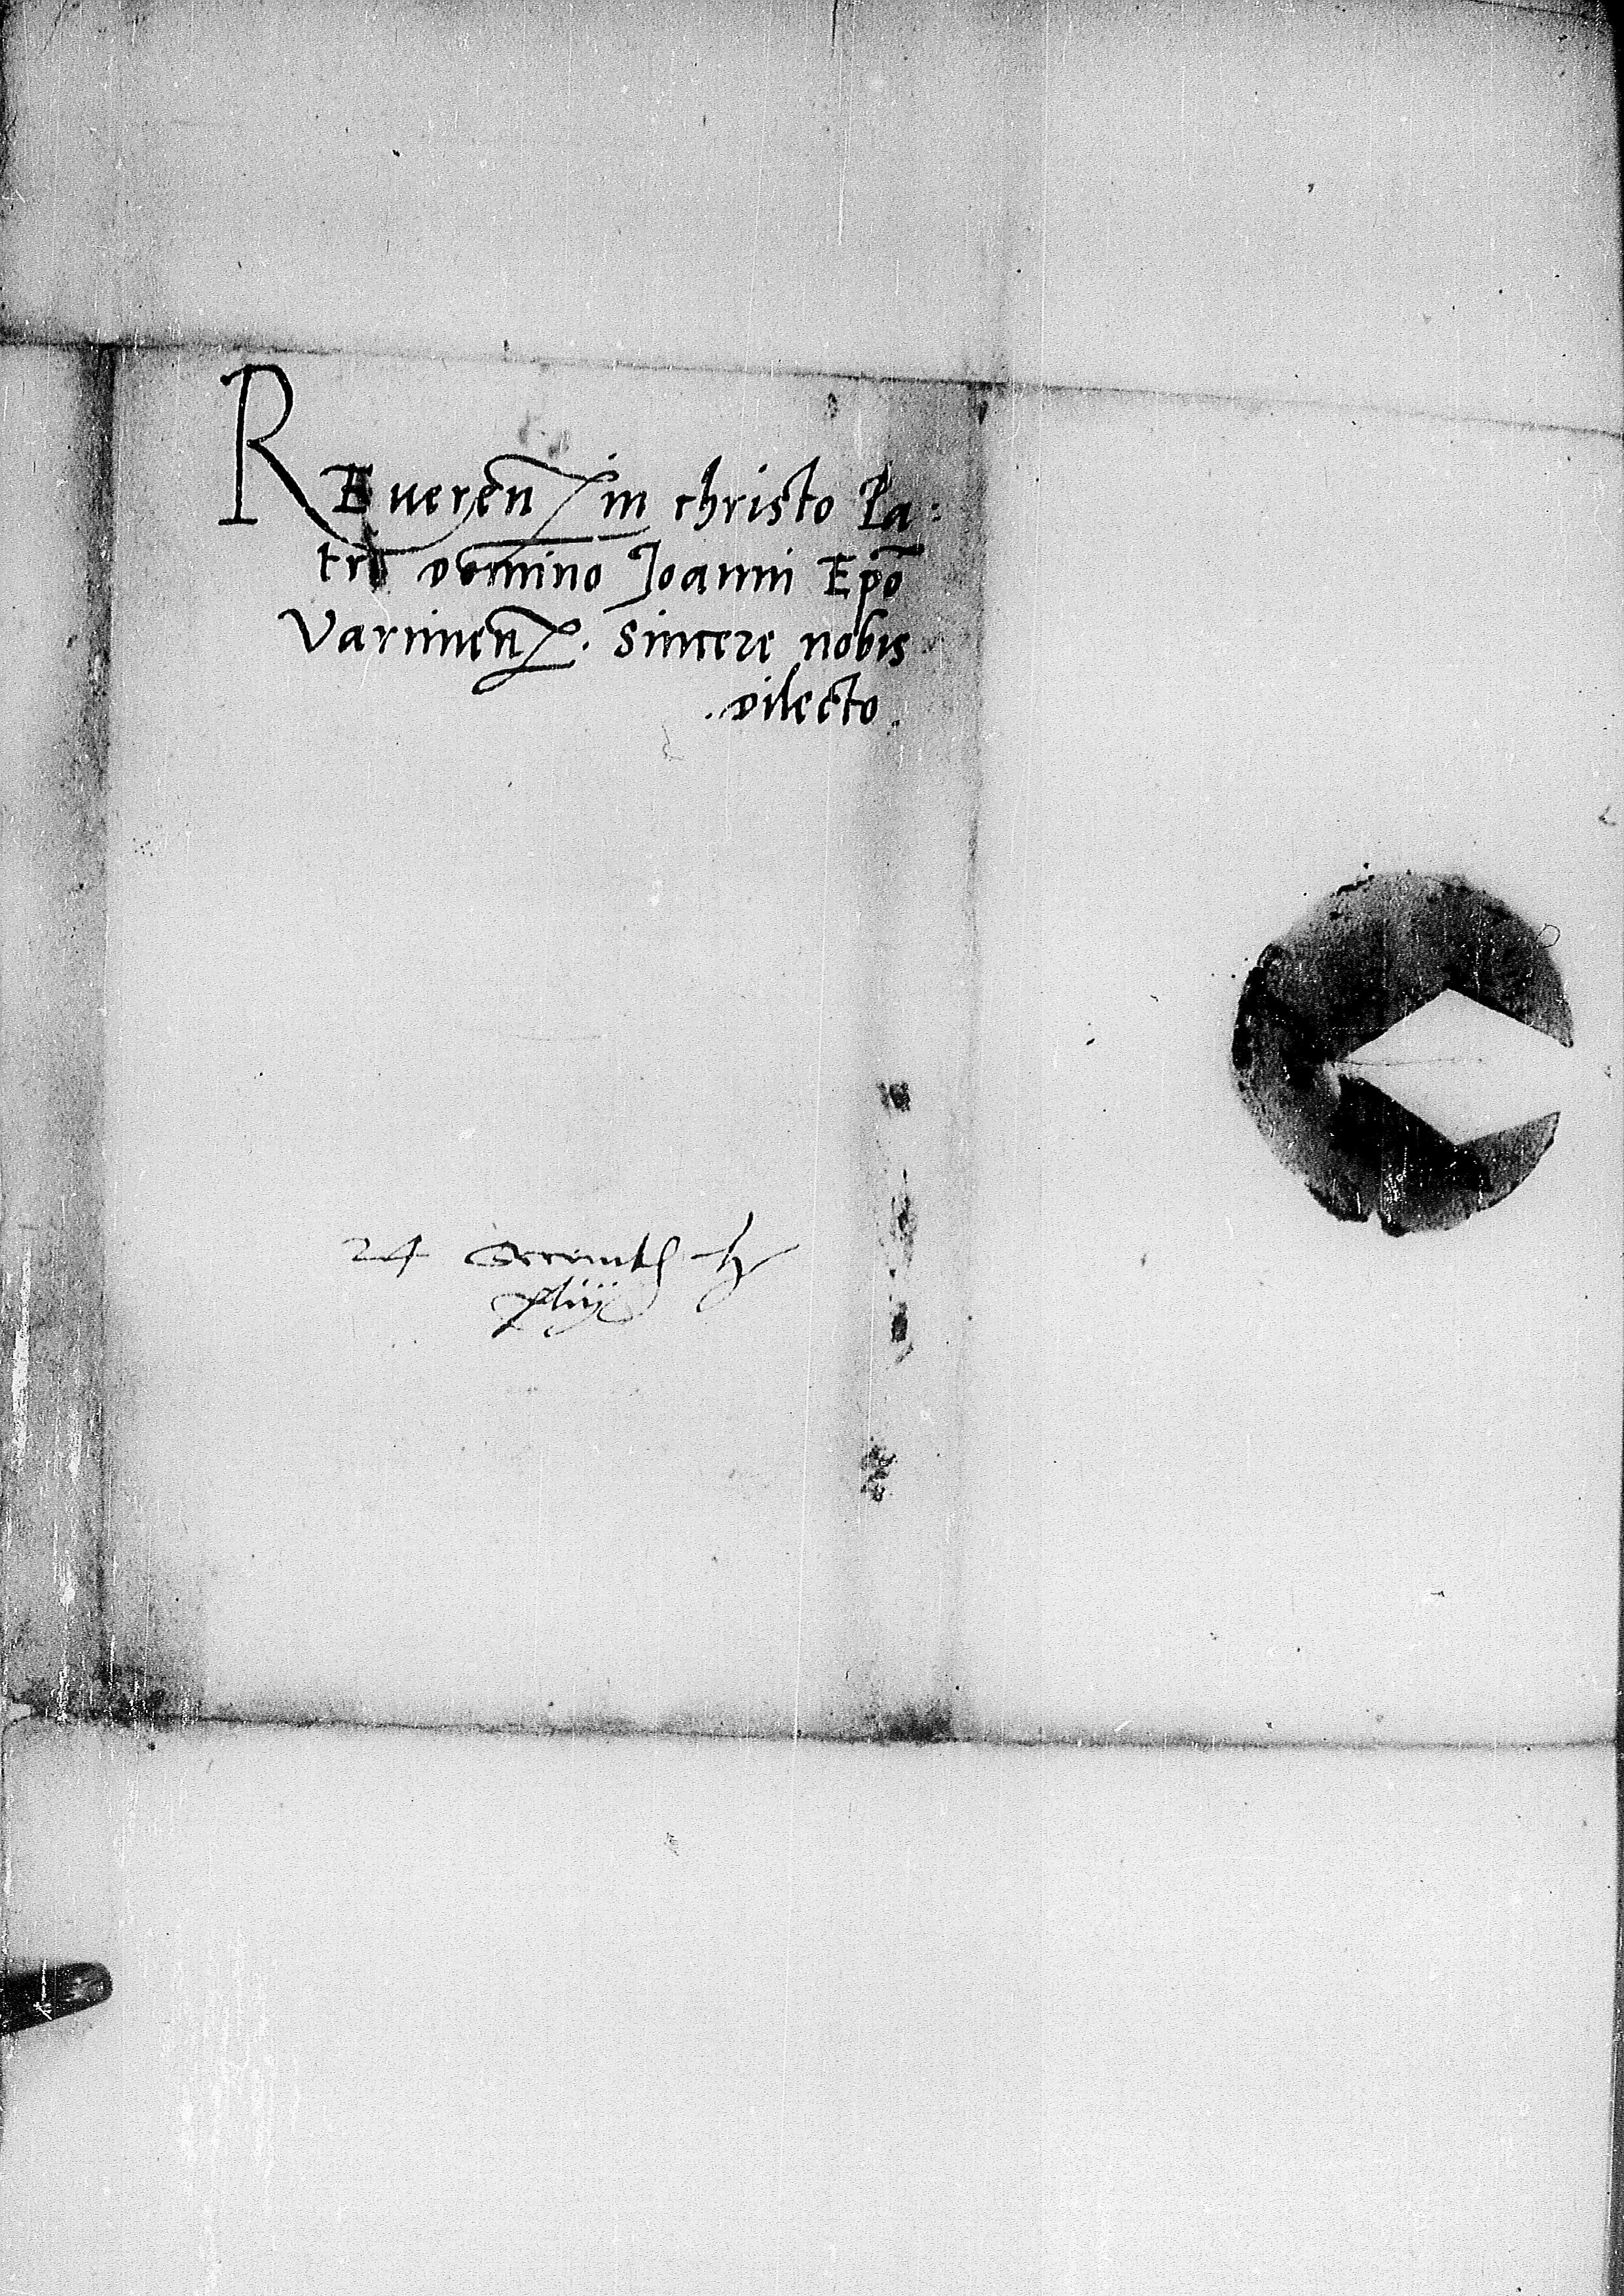 REueren in christo Pa:
tri domino Joanni Epo
Varmien. Sincere nobis
.dilecto.
24 Decemb
xliij